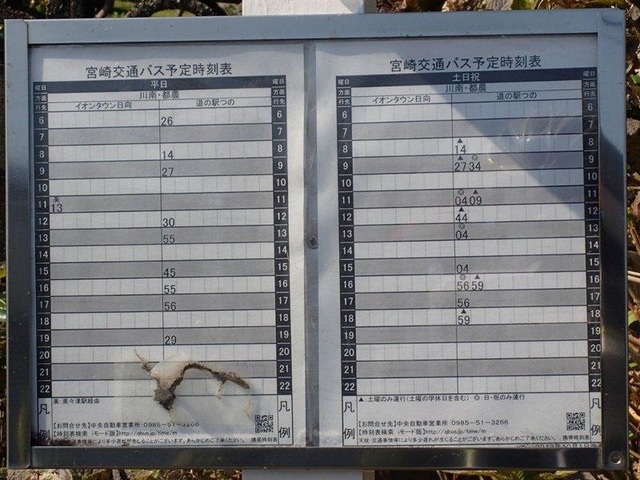 宮崎交通バス予定時刻表
曜日 平日 曜日
方面 川南・都農 方面
行先 イオンタウン日向 道の駅つの 行先
6 26 6
7 7
8 14 8
9 27 9
10 10
11 美 13 11
12 30 12
13 55 13
14 14
15 45 15
16 55 16
17 56 17
18 18
19 29 19
20 20
21 21
22 22
凡例
美:美々津駅経由
【お問合せ先】中央自動車営業所:0985-51-3266
【時刻表検索 iモード版】http://qbus.jp/time/m
天候・交通事情等により多少遅れが生じることがございます。あらかじめご了承ください。 携帯時刻表
宮崎交通バス予定時刻表
曜日 土日祝 曜日
方面 川南・都農 方面
行先 イオンタウン日向 道の駅つの 行先
6 6
7 7
8 ▲14 8
9 ▲27 ◎34 9
10 10
11 ◎04 ▲09 11
12 ▲44 12
13 ◎04 13
14 14
15 04 15
16 ◎56 ▲59 16
17 56 17
18 ▲59 18
19 19
20 20
21 21
22 22
凡例
▲:土曜のみ運行(土曜の学休日を含む) ◎:日・祝のみ運行
【お問合せ先】中央自動車営業所:0985-51-3266
【時刻表検索 iモード版】http://qbus.jp/time/m
天候・交通事情等により多少遅れが生じることがございます。あらかじめご了承ください。 携帯時刻表